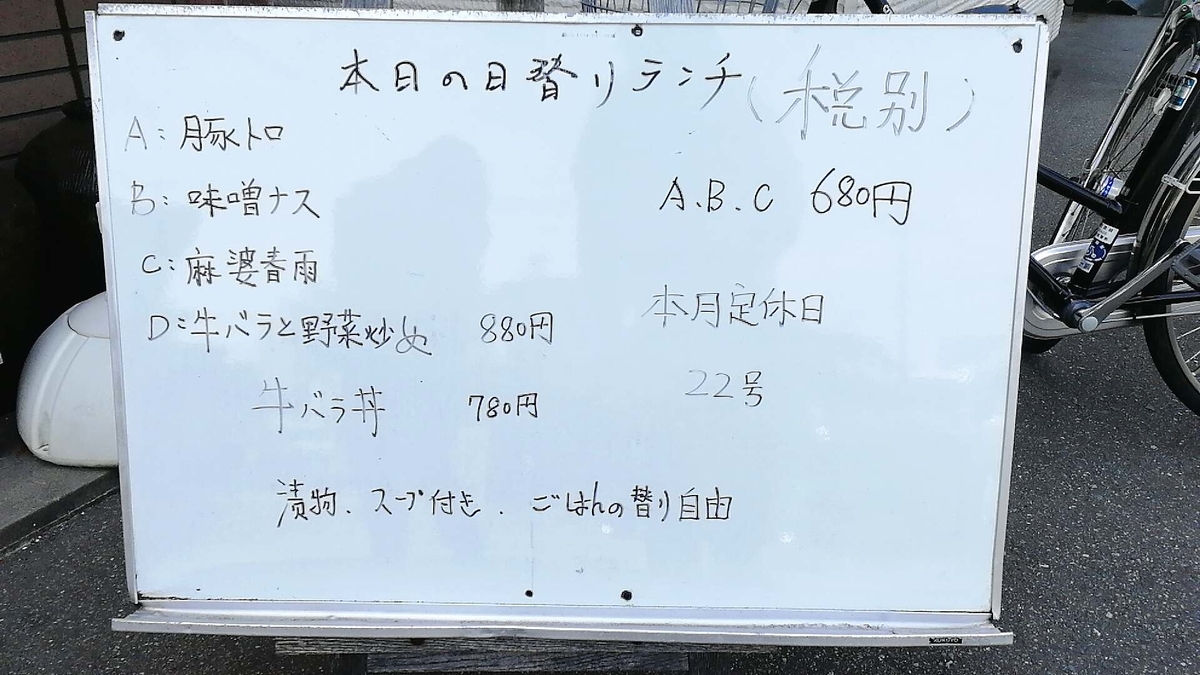 本日の日替りランチ(税別)
A:豚トロ
B:味噌ナス
C:麻婆春雨
D:牛バラと野菜炒め 880円
牛バラ丼 780円
A.B.C 680円
本月定休日
22号
漬物、スープ付き、ごはんの替り自由
KOKUYO